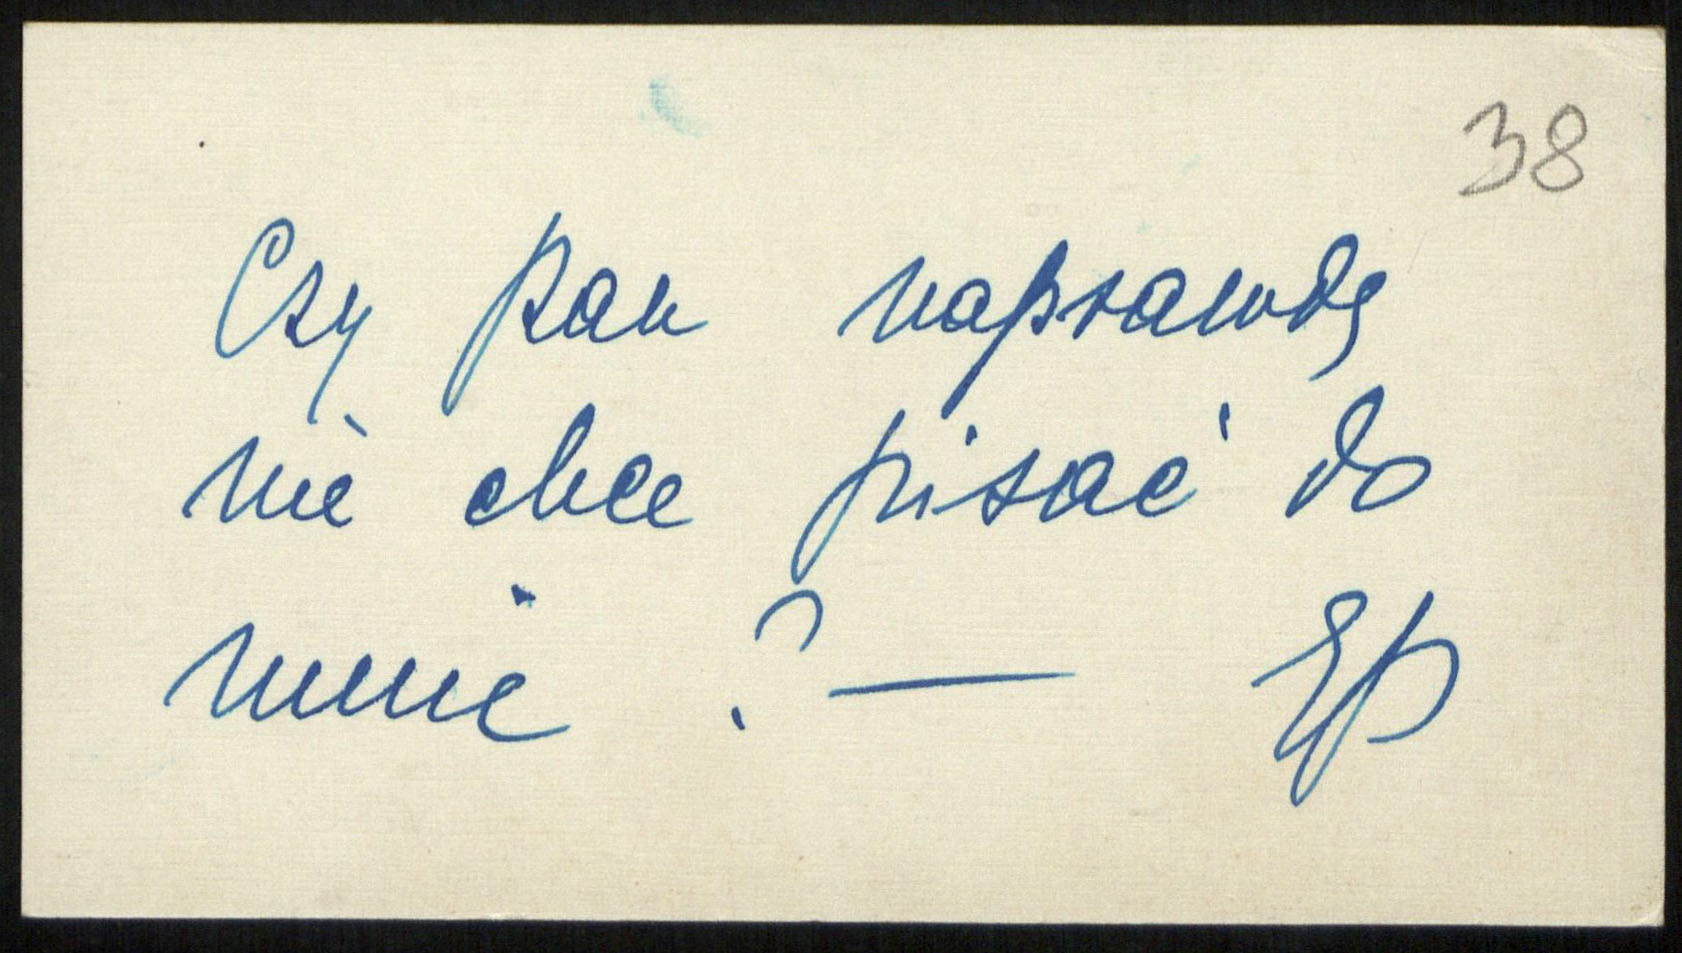 38
Czy pan naprawdę
nie chce pisać do
mnie ? —  EP